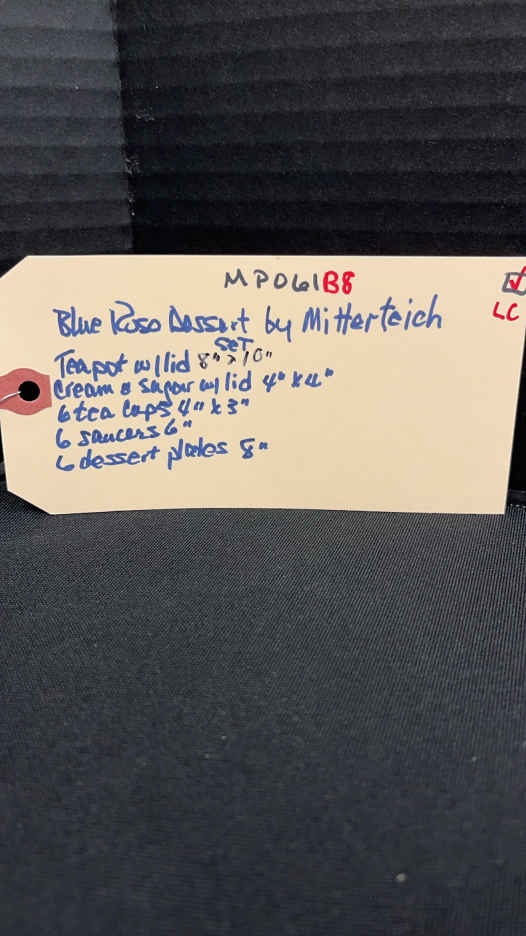 MPO61B8
LC
Blue Roso Dessert by Mitterteich
SET
Teapot w/lid 8" x 10"
Cream & Sugar w/lid 4" x 4"
6 tea Cups 4" x 3"
6 saucers 6"
6 dessert plates 8"